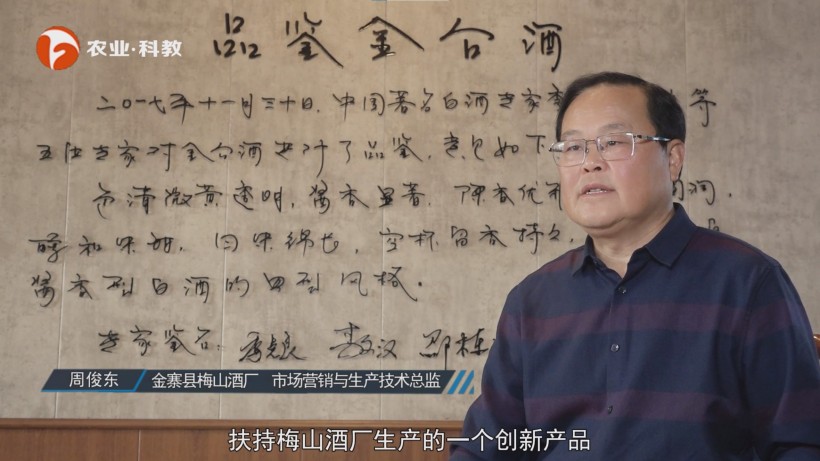 农业·科教
品鉴金台酒
二〇一七年十一月三十日，中国著名白酒专家季 等
五位专家对金台酒进行了品鉴，意见如下
色清微黄透明，酱香显著，陈香优雅 润，
醇和味甜，回味绵长，空杯留香持久，
酱香型白酒的典型风格。
专家鉴名：
周俊东 金寨县梅山酒厂 市场营销与生产技术总监
扶持梅山酒厂生产的一个创新产品